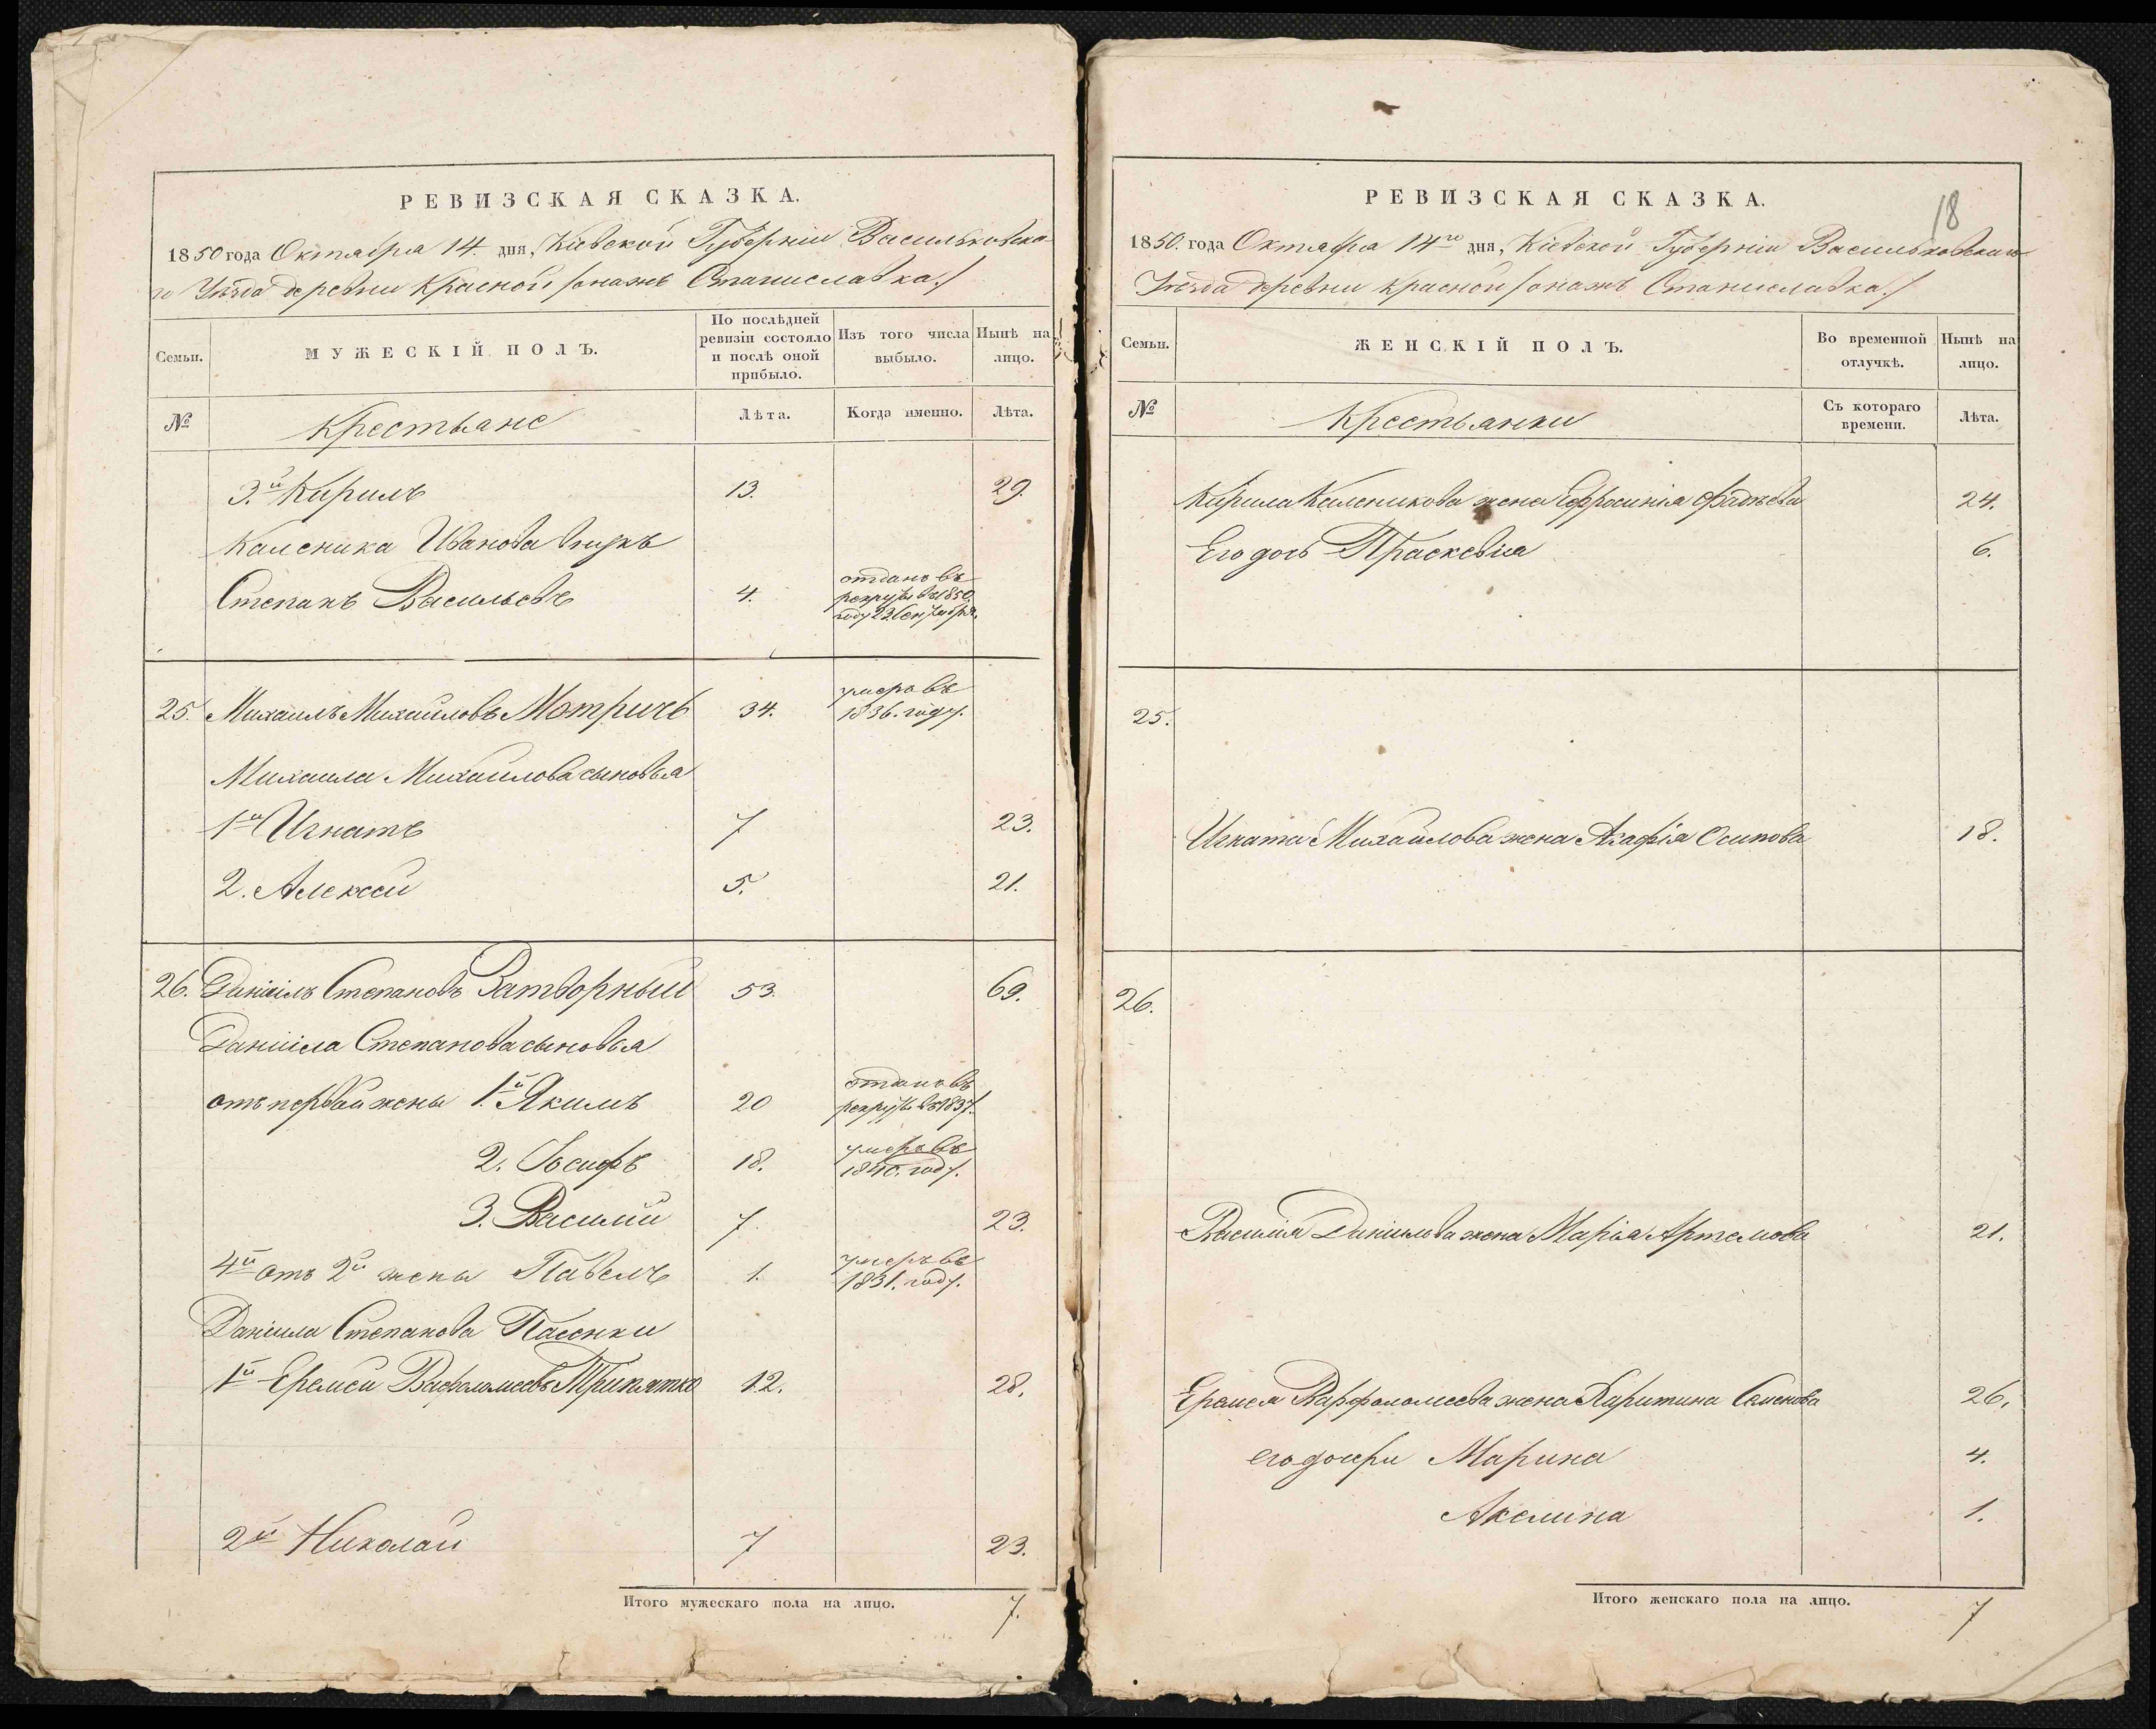 РЕВИЗСКАЯ СКАЗКА.
1850 года Октября 14. дня, Кіевской Губерніи Васильковска-
го Уѣзда деревни Красной /онажъ Станиславка./
Семьи. МУЖЕСКІЙ ПОЛЪ. По послѣдней ревизіи состояло и послѣ оной прибыло. Изъ того числа выбыло. Нынѣ на лицо.
№ Крестьяне Лѣта. Когда именно. Лѣта.
3.й Кирилъ 13. 29.
Каленика Иванова внукъ
Степанъ Васильевъ 4. отданъ въ рекруты въ 1850. году 23 Сентября.
25. Михаилъ Михайловъ Мотричъ 34. умеръ въ 1836. году.
Михаила Михайлова сыновья
1й Игнатъ 7 23.
2. Алексей 5. 21.
26. Даніилъ Степановъ Затворный 53. 69.
Даніила Степанова сыновья
отъ первой жены 1.й Якимъ 20 отданъ въ рекруты въ 1837.
2. Іосифъ 18. умеръ въ 1840. году.
3. Василий 7. 23.
4й отъ 2й жены Павелъ 1. умеръ въ 1831. году.
Даніила Степанова Пасенки
1й Еремей Варфоломеевъ Трипятко 12. 28.
2й Николай 7 23.
Итого мужескаго пола на лицо. 7.
РЕВИЗСКАЯ СКАЗКА.
18
1850. года Октября 14го дня, Кіевской Губерніи Васильковскаго
Уезда деревни Красной /онажъ Станиславка./
Семьи. ЖЕНСКІЙ ПОЛЪ. Во временной отлучкѣ. Нынѣ на лицо.
№ Крестьянки Съ котораго времени. Лѣта.
Кирила Каленикова жена Ефросинія Фадѣева 24.
Его дочь Праскевія 6.
25.
Игната Михайлова жена Агафія Осипова 18.
26.
Василія Данилова жена Марія Артемова 21.
Еремея Варфоломеева жена Харитина Семенова 26.
его дочери Марина 4.
Акелина 1.
Итого женскаго пола на лицо. 7